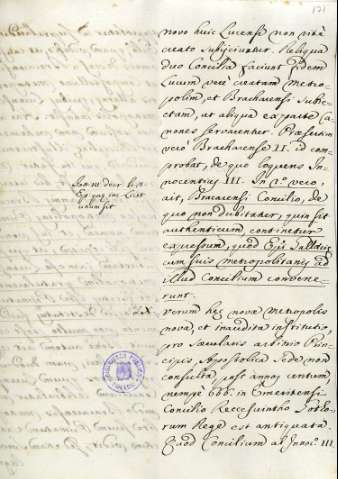 121
novo huic Lucensi non ritè
creato subijciuntur. Reliqua
duo Concilia faciunt fidem
Lucum verè erectam Metro-
polim, et Bracharensi subie-
ctam, et aliqua ex parte Ca-
nones servarentur. Præsertim
verò Bracharense II. id com-
probat, de quo loquens In-
nocentius III. In 2.º vero,
ait, Bracarensi Concilio, de
quo non dubitatur, quin sit
authenticum continetur
expressum, quod Epi Gallæcię
cum suis metropolitanis ad
illud Concilium convene-
runt.
Verum hęc novæ Metropolis
nova, et inaudita institutio,
pro sæcularis arbitrio Prin-
cipis, Apostolica Sede non
consulta, post annos centum,
nempe 666. in Emeritensi
Concilio Reccesuintho Gotho-
rum Rege est antiquata.
Quod Concilium ab Innoc. III.